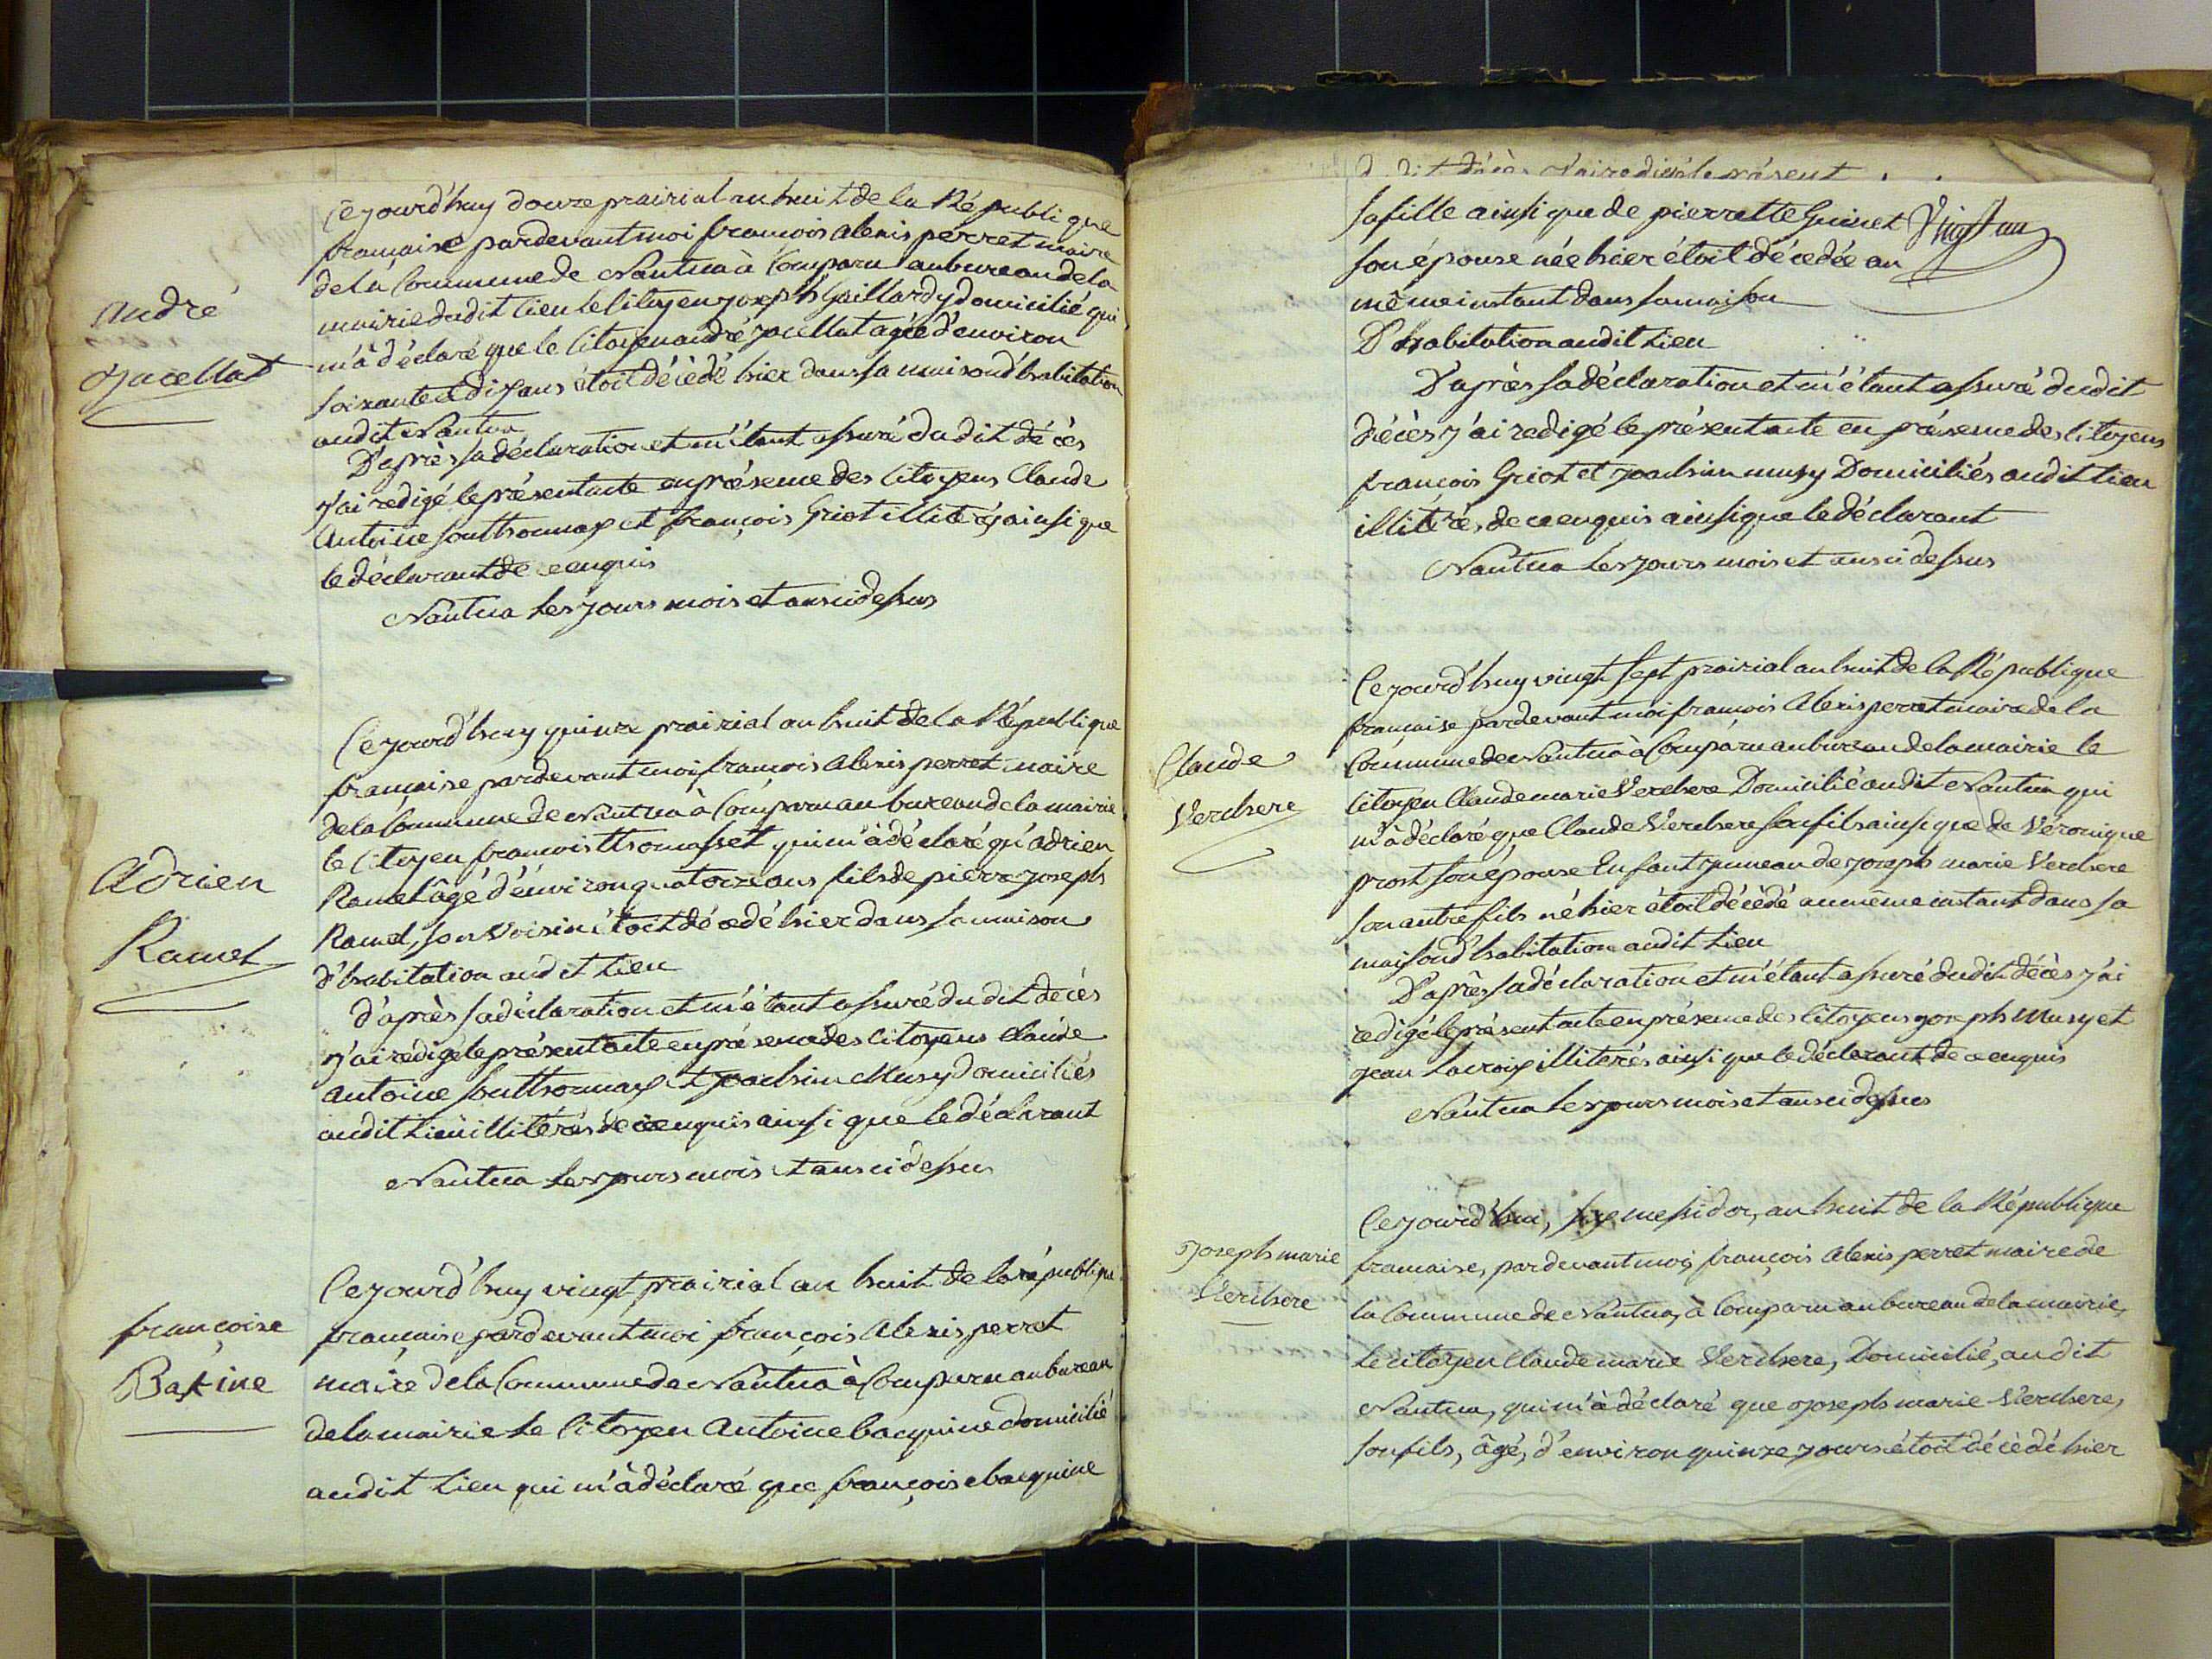 André
Jacellat
Cejourd'huy douze prairial an huit de la République
française pardevant moi françois alexis perret maire
de la Commune de Nantua à Comparu au bureau de la
mairie dudit Lieu le Citoyen joseph Gaillard y domicilié qui
m'à déclaré que le Citoyen andré jacellat agée d'environ
soixante et dix ans étoit décèdé hier dans sa maison d'habitation
audit Nantua
D'après sa déclaration et m'étant assuré du dit décès
j'ai redigé le présent acte en présence des Citoyens Claude
Antoine Southonnax et françois Griot illitérés ainsi que
le déclarant de ce enquis
Nantua Les jours mois et an ci dessus
Adrien
Ramel
Cejourd'huy quinze prairial an huit de la République
française pardevant moi françois alexis perret maire
de la Commune de Nantua à Comparu au bureau de la mairie
le Citoyen françois Thomasset qui m'à déclaré qu'adrien
Ramel âgé d'environ quatorze ans fils de pierre joseph
Ramel, son voisin étoit décedé hier dans sa maison
d'habitation audit Lieu
d'après sa déclaration et m'étant assuré du dit décès
j'ai rédigé le présent acte en présence des Citoyens Claude
antoine Southonnax et joachim Musy domiciliés
audit Lieu illitérés de ce enquis ainsi que le déclarant
Nantua Les jours mois et an ci dessus
françoise
Bakine
Cejourd'huy vingt prairial an huit de la république
française pardevant moi françois alexis perret
maire de la Commune de Nantua à Comparu au bureau
de la mairie Le Citoyen Antoine bacquine domicilié
audit Lieu qui m'à déclaré que françoise bacquine
dudit décès j'ai redigé le présent
sa fille ainsi que de pierrette Guinet
son épouse née hier étoit décedée au
même instant dans sa maison
D'habitation audit Lieu
D'après sa déclaration et m'étant assuré dudit
décès j'ai redigé le présent acte en présence des Citoyens
françois Griot et joachim musy Domiciliés audit Lieu
illitérés, de ce enquis ainsi que le déclarant
Nantua Les jours mois et an ci dessus
Claude
Verchere
Cejourd'huy vingt sept prairial an huit de la République
française pardevant moi françois Alexis perret maire de la
Commune de Nantua à Comparu au bureau de la mairie le
Citoyen Claude marie Verchere Domicilié audit Nantua qui
m'à déclaré que Claude Verchere son fils ainsi que de Véronique
prost son épouse Enfant jumeau de joseph marie Verchere
son autre fils né hier étoit décèdé au même instant dans sa
maison d'habitation audit Lieu
D'après sa déclaration et m'étant assuré dudit décès j'ai
redigé le présent acte en présence des Citoyens joseph Musy et
jean Lacroix illiterés ainsi que le déclarant de ce enquis
Nantua Les jours mois et an ci dessus
Joseph marie
Verchere
Cejourd'hui, six messidor, an huit de la République
francaise, pardevant moi, françois Alexis perret maire de
la Commune de Nantua, à Comparu au bureau de la mairie,
Le citoyen Claude marie Verchere, Domicilié, audit
Nantua, qui m'à déclaré que joseph marie Verchere,
son fils, âgé, d'environ quinze jours étoit décèdé hier